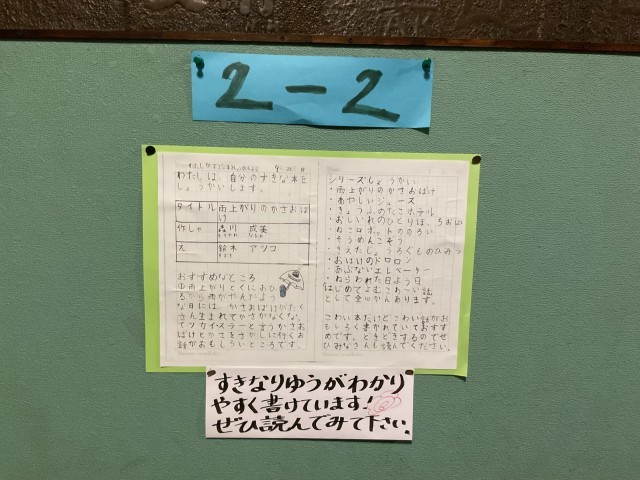 2-2
わたしは、自分のすきな本を
しょうかいします。
タイトル 雨上がりのかさおば
け
作しゃ 森川 成美
え 鈴木 アツコ
おすすめなところ
な日には、かさおばけがたく
さん生まれてかさがなくな
ばけとかさをさがしに行くお
話がおもしろいところです。
シリーズしょうかい
・雨上がりのかさおばけ
・あやしいジュース
・きょうふのたこホテル
・ねこロボットののろい
・そうめんこぞう
・おばけのドロロン
・あぶないエレベーター
・ねらわれた日よう日
はじめてよむこわ〜い話
として全10かんあります。
こわい本だけどこわい話がお
もしろく書かれていておすす
めです。ときどきするのでぜ
ひみなさんも読んでください。
すきなりゆうがわかり
やすく書けています!
ぜひ読んでみて下さい。